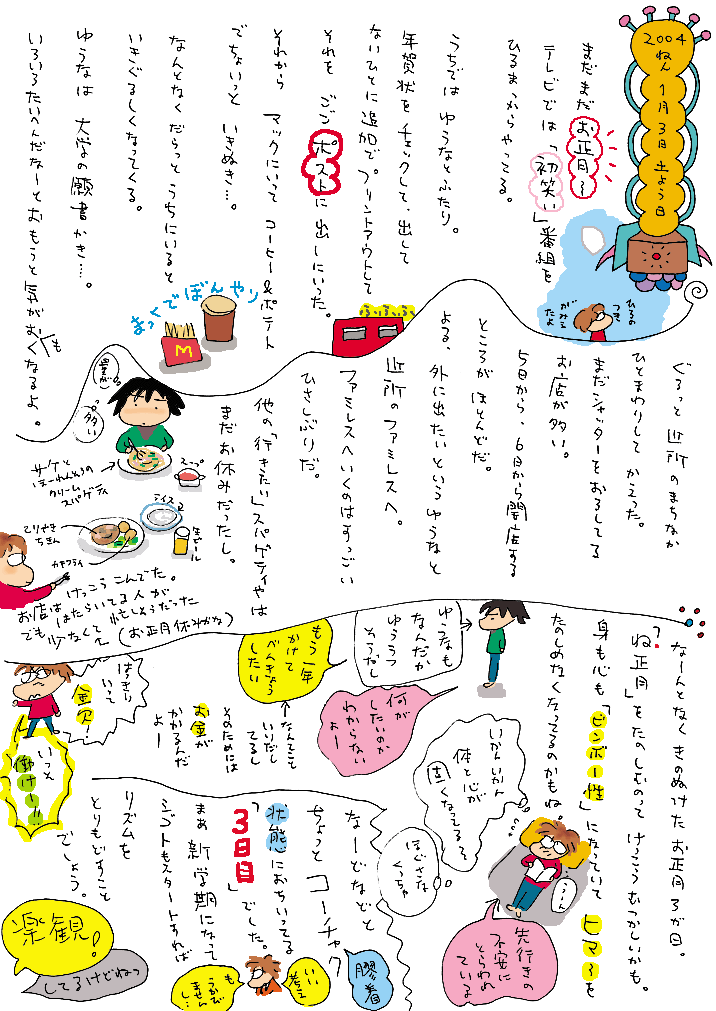 2004ねん1月3日土よう日
まだまだお正月〜
テレビでは「初笑い」番組を
ひるまっからやってる。
うちでは ゆうなとふたり。
年賀状をチェックして、出して
ないひとに追加で プリントアウトして
それを ごごポストに 出しにいった。
それから マックにいって コーヒー&ポテト
でちょいっと いきぬき…。
なんとなくだらっと うちにいると
いきぐるしくなってくる。
ゆうなは 大学の願書かき…。
いろいろたいへんだなーとおもうと気がおもくなるよ。
ひるの
つきが
みえ
たよ
ふふふふ
まっくでぼんやり
ぐるっと 近所のまちなか
ひとまわりして かえった。
まだシャッターをおろしてる
お店が多い。
5日から、6日から開店する
ところが ほとんどだ。
よる、外に出たいというゆうなと
近所のファミレスへ。
ファミレスへいくのはすっごい
ひさしぶりだ。
他の「行きたい」スパゲティやは
まだお休みだったし。
量が
多い
サケと
ほーれんそうの
クリーム
スパゲティ
スープ
ライス
生ビール
てりやき
ちきん
カキフライ
けっこうこんでた。
お店は はたらいてる人が
でも 少なくて 忙しそうだった
(お正月休みかな)
なーんとなく きのぬけた お正月3が日。
「ね正月」をたのしむのって けっこうむつかしいかも。
身も心も「ビンボー性」になっていて ヒマ〜を
たのしめなくなってるのかもね。
ゆうなも
なんだか
ゆううつ
そうだし
何が
したいのか
わからない
よー
もう一年
かけて
べんきょう
したい
なんてこと
いいだし
てるし
そのためには
お金が
かかるんだ
よー
はっきり
いって
金欠!
いっそ
働けー!!
いかんいかん
体と心が
重くなってる〜
ほぐさな
くっちゃ
うーん
先行きの
不安に
とらわれ
ている
なーどなどと
ちょっと コーチャク
状態におちいってる
「3日目」でした。
まぁ 新学期になって
シゴトもスタートすれば
リズムを
とりもどすこと
でしょう。
膠着
いい
考え
も
うかび
ません
し…
楽観!
してるけどねっ